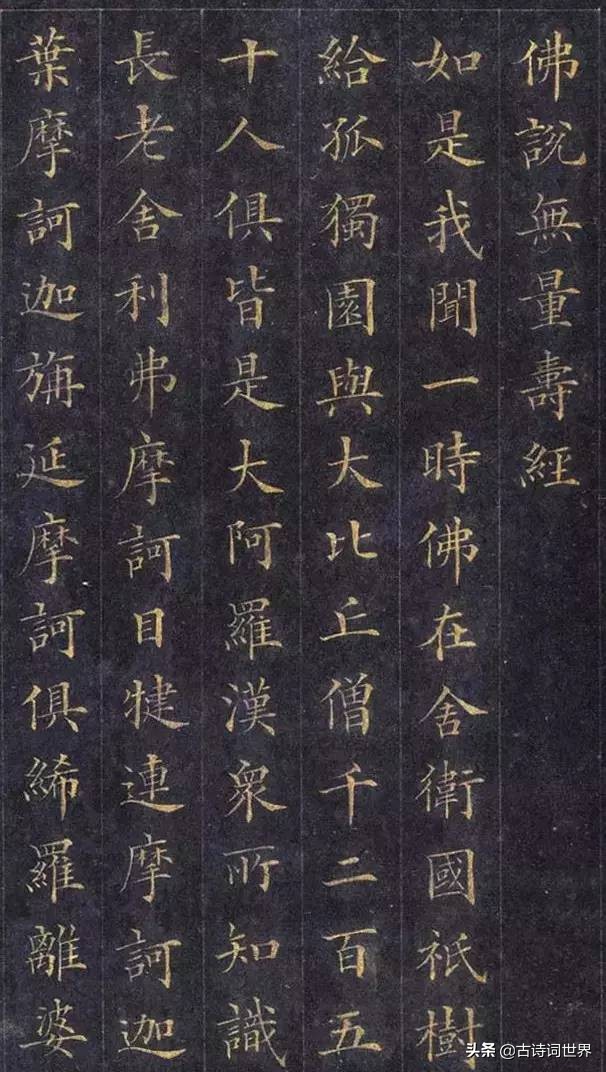 佛說無量壽經
如是我聞一時佛在舍衛國祇樹
給孤獨園與大比丘僧千二百五
十人俱皆是大阿羅漢衆所知識
長老舍利弗摩訶目犍連摩訶迦
葉摩訶迦旃延摩訶俱絺羅離婆
头条 @古诗词世界